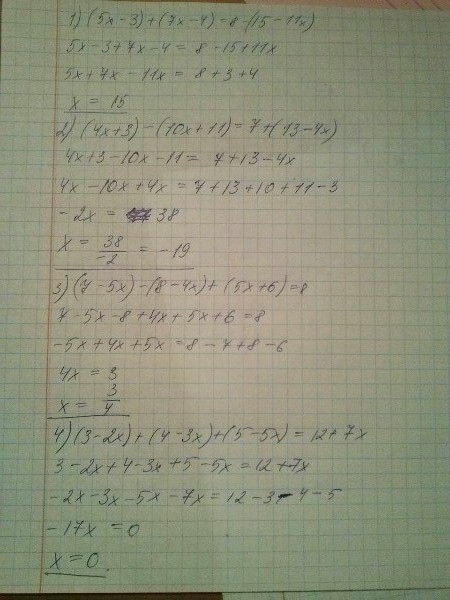 1) (5x-3)+(7x-4)=8-(15-11x)
5x-3+7x-4= 8-15+11x
5x+7x-11x= 8+3+4
x = 15
2) (4x+3)-(10x+11)=7+(13-4x)
4x+3-10x-11= 7+13-4x
4x-10x+4x=7+13+10+11-3
-2x = 38
x = 38/-2 = -19
3) (7-5x)-(8-4x)+(5x+6)=8
7-5x-8+4x+5x+6=8
-5x+4x+5x=8-7+8-6
4x = 3
x = 3/4
4) (3-2x)+(4-3x)+(5-5x)=12+7x
3-2x+4-3x+5-5x=12+7x
-2x-3x-5x-7x=12-3-4-5
-17x =0
x=0.